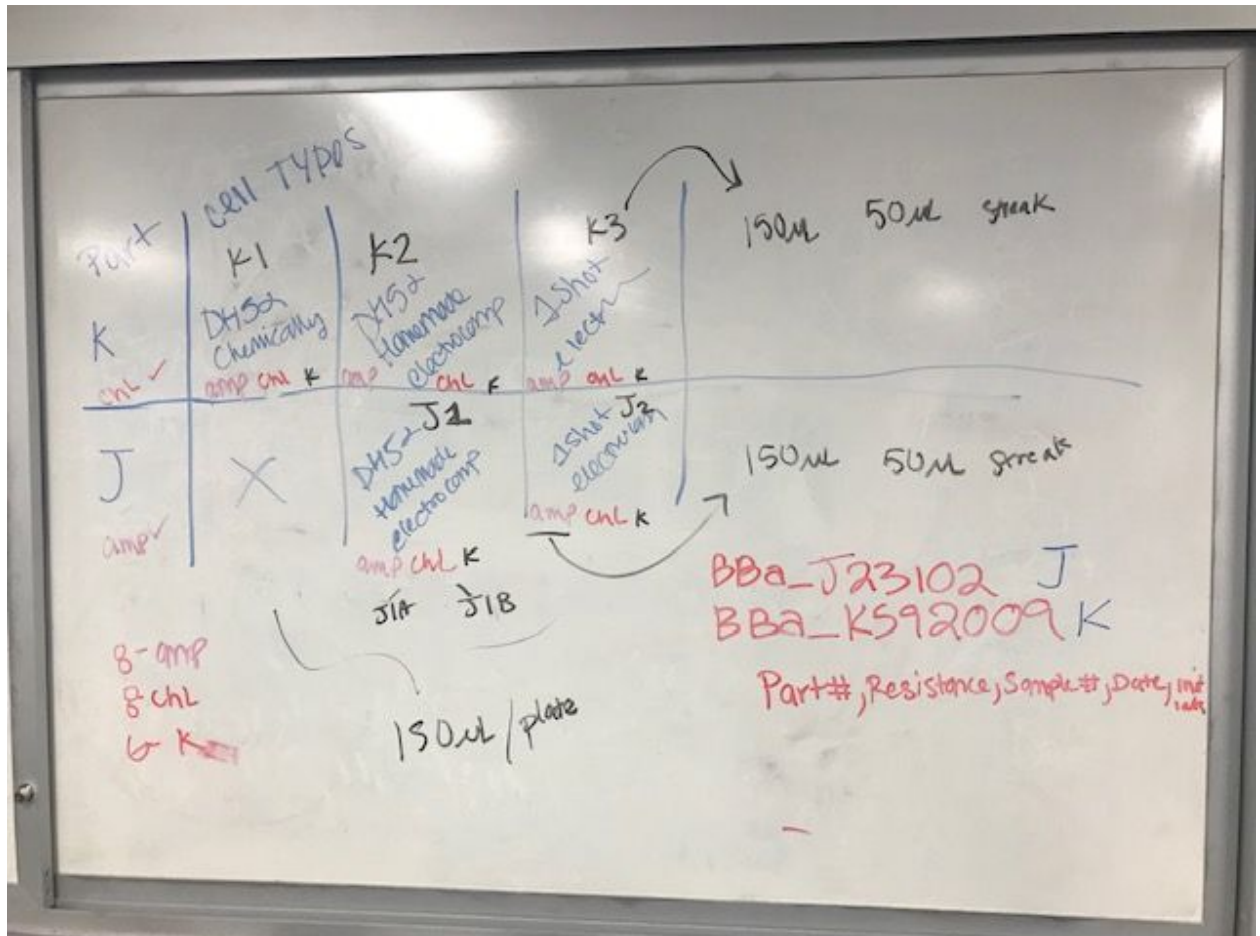 Part
cell TYPOS
K
chl ✓
K1
DH5α
Chemically
amp chl K
K2
DH5α
Homemade
electrocomp
amp chl K
K3
1shot
elect
amp chl K
150uL 50uL streak
J
amp ✓
X
J1
DH5α
Homemade
electrocomp
amp chl K
J1A J1B
J2
1shot
amp chl K
150uL 50uL streak
BBa_J23102 J
BBa_K592009 K
Part#, Resistance, Sample#, Date, initials
8-amp
8 chl
6 K
150uL/plate